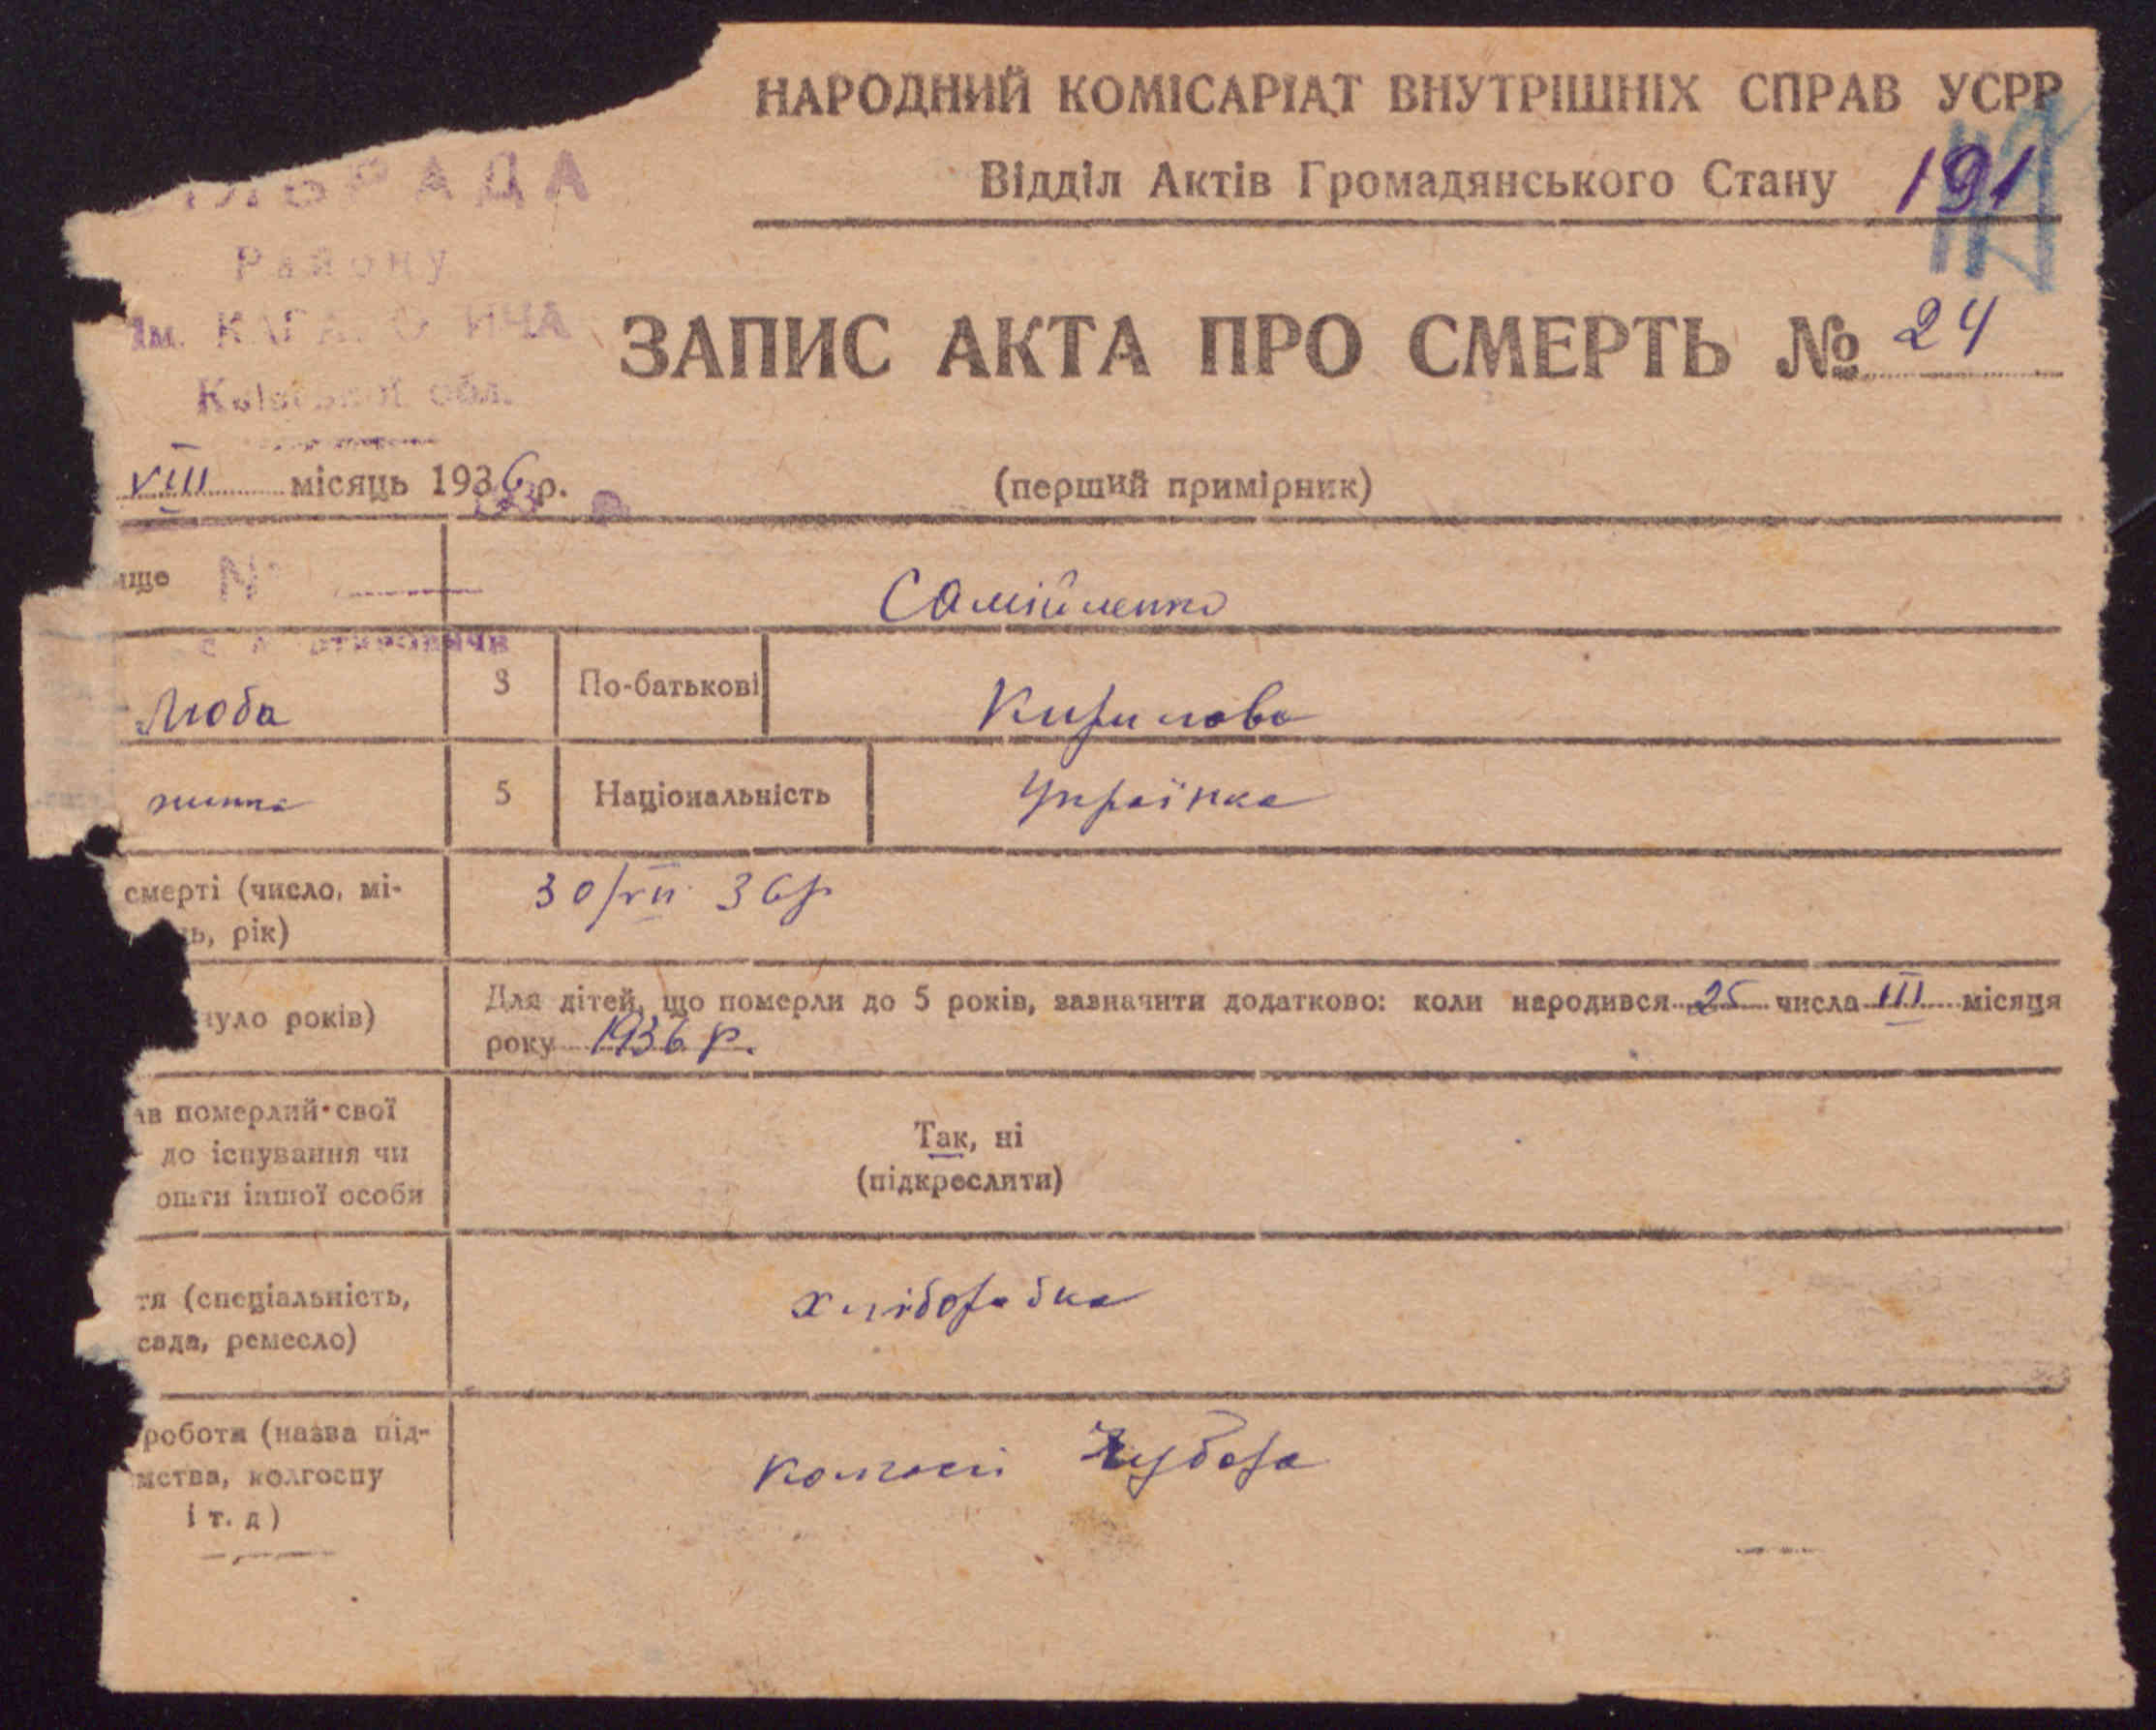 НАРОДНИЙ КОМІСАРІАТ ВНУТРІШНІХ СПРАВ УСРР
Відділ Актів Громадянського Стану 191
РАДА
Району
Ім. КАГАНОВИЧА
Київської обл.
ЗАПИС АКТА ПРО СМЕРТЬ № 24
VIII місяць 1936 р.
(перший примірник)
ище
№
Самійленко
Люба
3 По-батькові Кирилова
жінка
5 Національність Українка
смерті (число, мі-
ь, рік)
30/VII 36р
нуло років)
Для дітей, що померли до 5 років, зазначити додатково: коли народився 25 числа III місяця
року 1936 р.
ав померлий свої
до існування чи
ошти іншої особи
Так, ні
(підкреслити)
тя (спеціальність,
сада, ремесло)
хліборобка
роботи (назва під-
мства, колгоспу
і т. д)
колгосп Чубаря